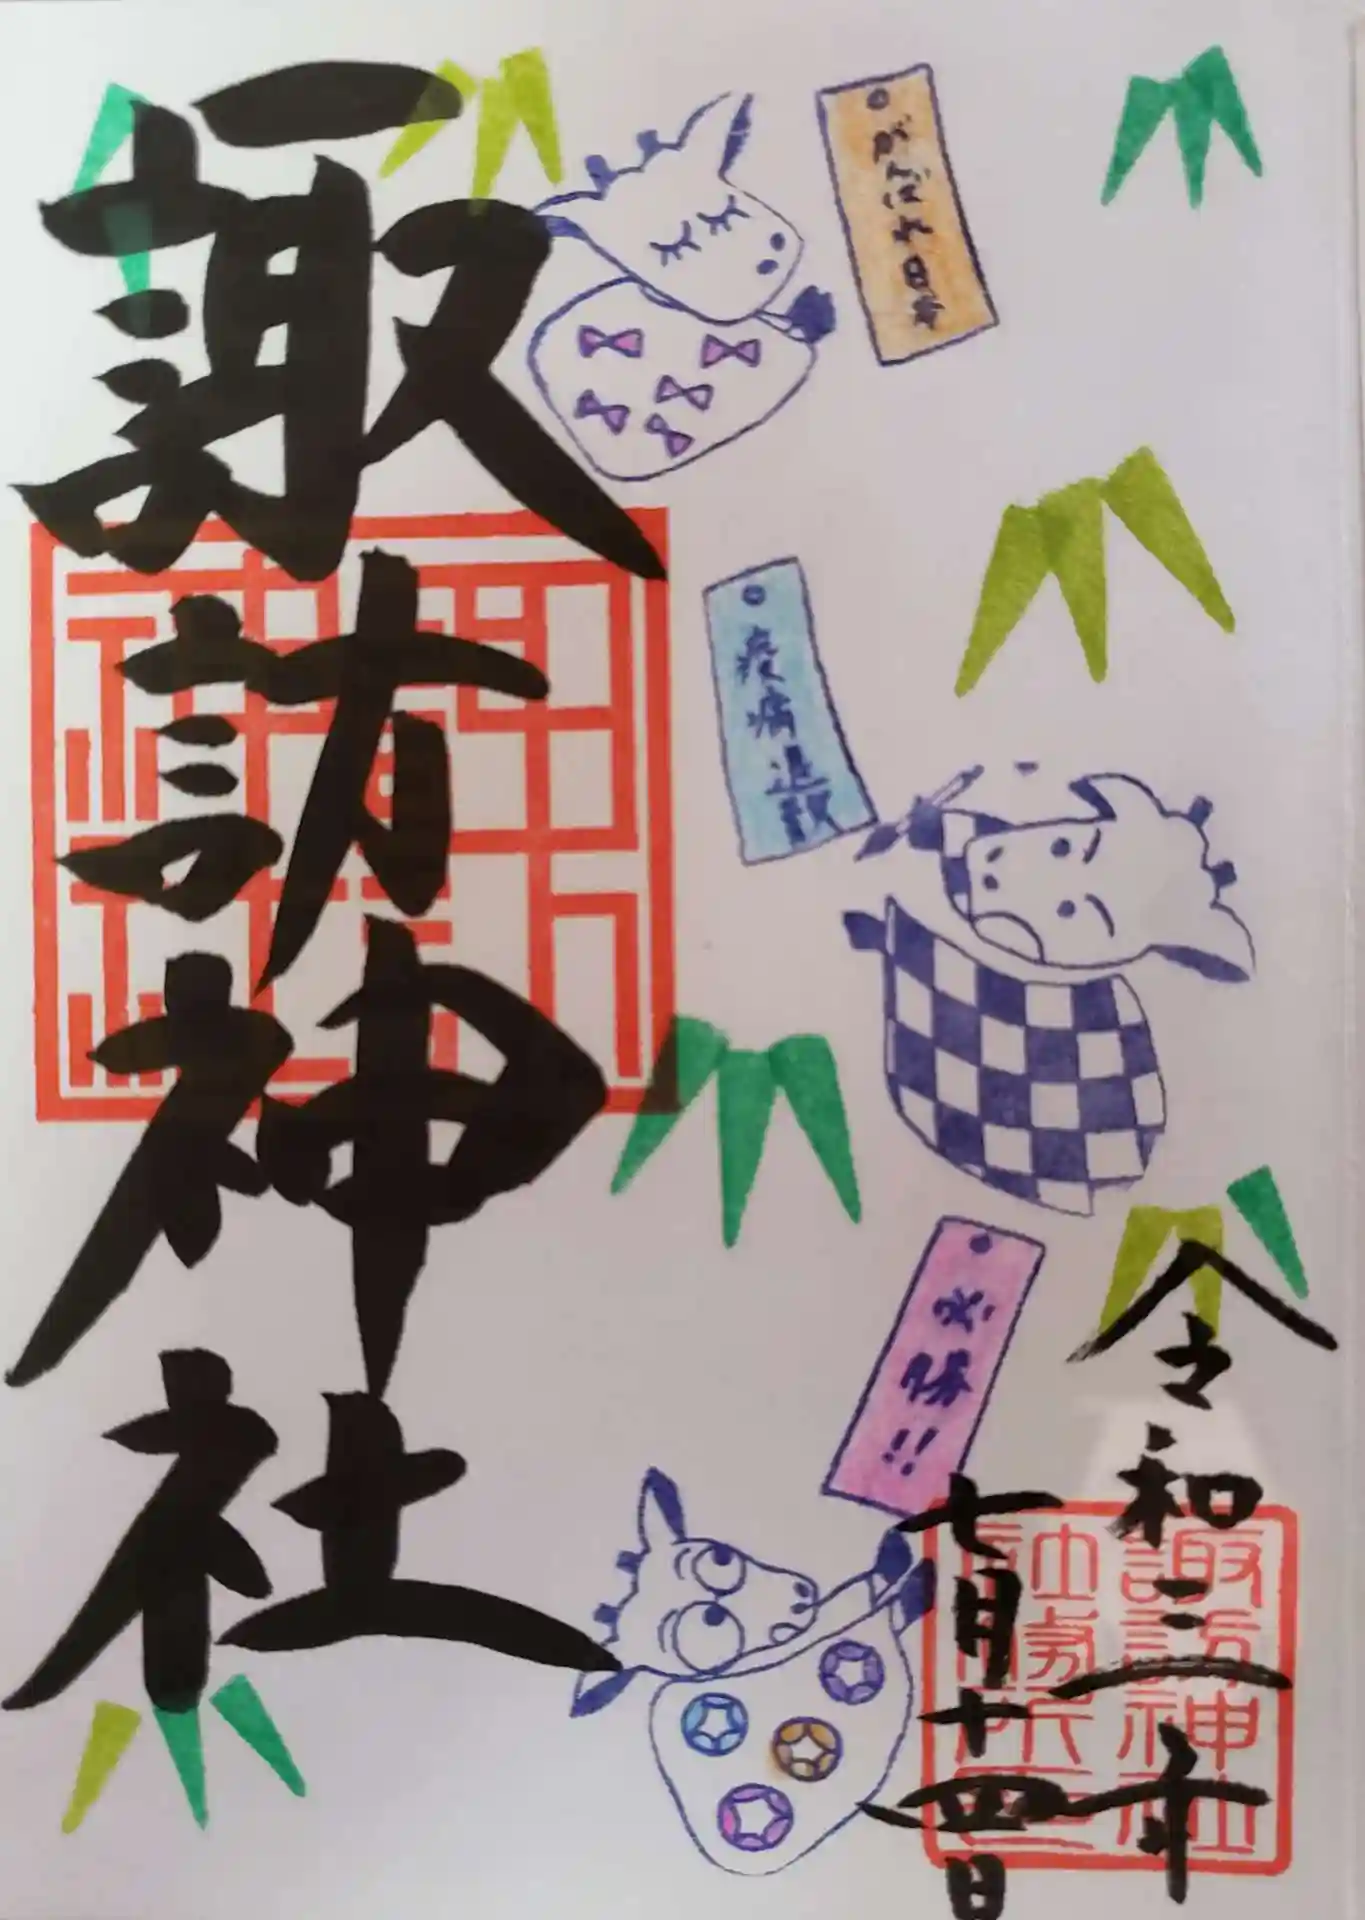 諏訪神社
がんばれ日本
疫病退散
必勝!!
令和二年
七月十四日
諏訪神社
社務所印